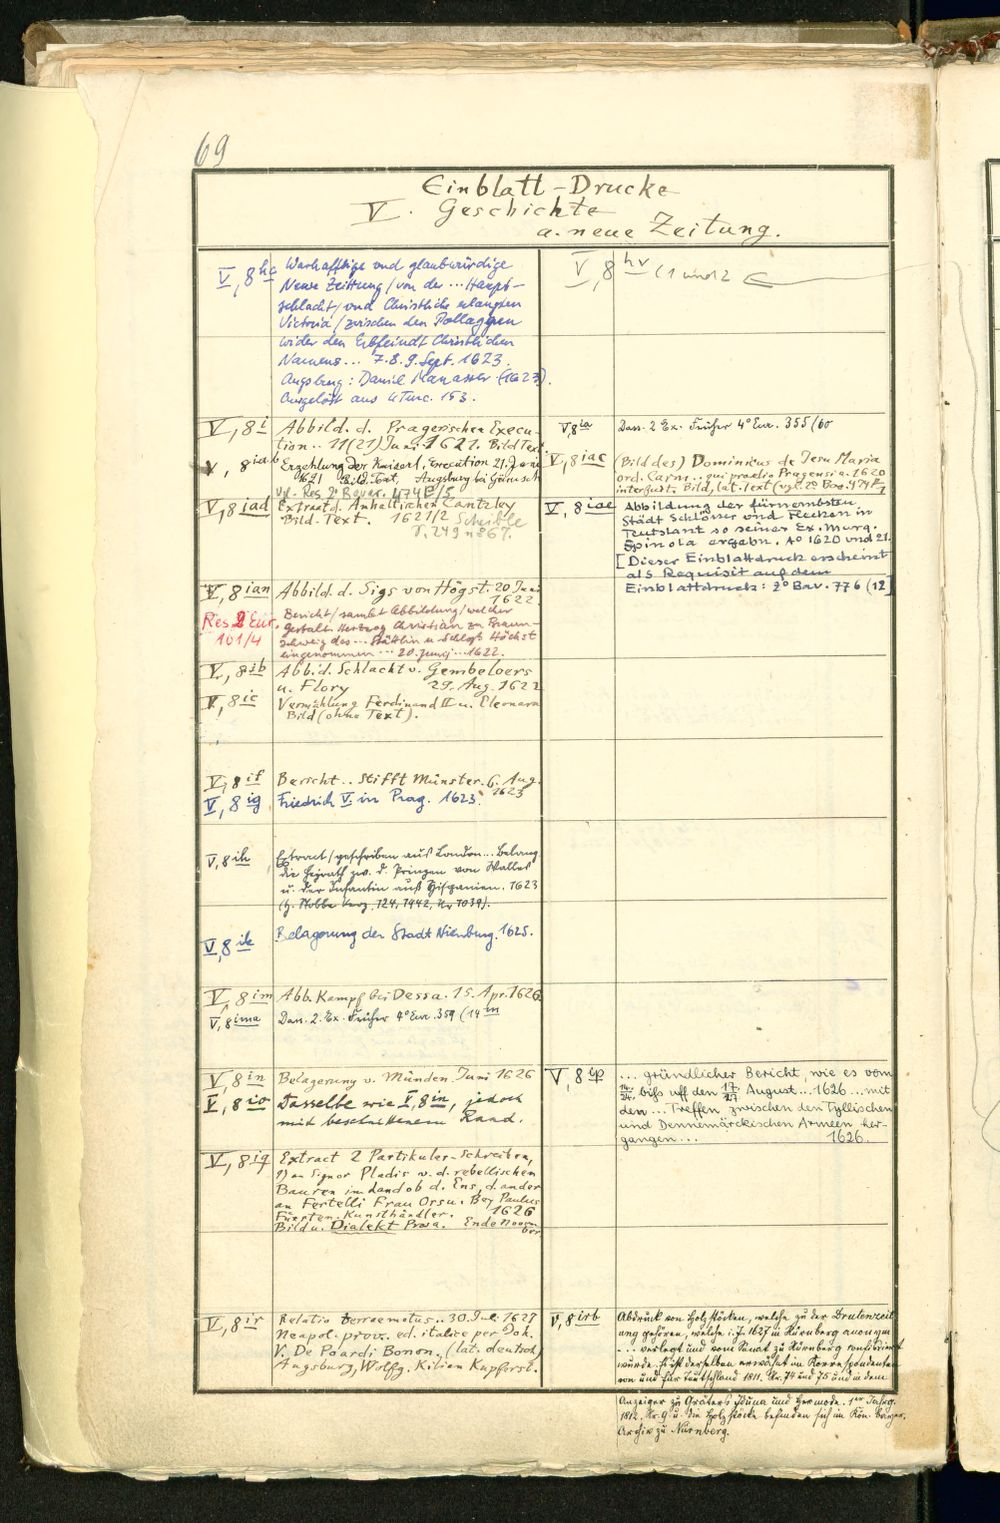 69
Einblatt-Drucke
V. Geschichte
a. neue Zeitung.
V, 8 hc Warhafftige vnd glaubwürdige
Newe Zeittung/von der ... Haupt-
schlacht/vnd Christliche erlangten
Victoria/zwischen den Pollaggen
wider den Erbfeindt Christlichen
Namens... 7.8.9. Sept. 1623.
Augsburg: Daniel Manasser (1623).
Ausgelöst aus 4 Turc. 153.
V, 8 hv (1 und 2
V, 8 i Abbild. d. Pragerischen Execu-
tion .. 11(21) Juni 1621. Bild Text
V, 8 iab Erzehlung der Kaiserl. Execution 21. Juni
1621 Bild. Text, Augsburg bei
Vgl. Res. 2° Bavar. 474
V, 8 iad Extract d. Anhaltischen Cantzley
Bild. Text. 1621/2 Scheible
S. 249 n° 67.
V, 8 ian Abbild. d. Sigs von Högst. 20 Juni
1622.
Res 2 Eur.
161/4
Bericht/sambt Abbildung/welcher
gestalt Hertzog Christian zu Braun-
schweig das ... Stättlin u. Schloß Höchst
eingenommen ... 20. Junij ... 1622.
V, 8 ib Abb. d. Schlacht v. Gembelours
u. Flory 29. Aug. 1622
V, 8 ic Vermählung Ferdinand II u. Eleonora
Bild (ohne Text).
V, 8 if Bericht .. Stifft Münster. 6. Aug.
1623
V, 8 ig Friedrich V. in Prag. 1623.
V, 8 ih Extract/geschriben auß London... Belang.
die Heyrath zw. d. Prinzen von Walles
u. der Infantin auß Hispanien. 1623
V, 8 ik Belagerung der Stadt Nienburg. 1625.
V, 8 im Abb. Kampf bei Dessa. 15. Apr. 1626
V, 8 ima Dass. 2. Ex. Früher 4° Eur. 359 (14 m
V, 8 in Belagerung v. Münden Juni 1626
V, 8 io Dasselbe wie V, 8 in, jedoch
mit beschnittenem Rand.
V, 8 iq Extract 2 Partikular-Schreiben,
1) an Signor Pladis v. d. rebellischen
Bauren im Land ob d. Ens, d. ander
an Fertelli Frau Ossu. Bey Paulus
Fürsten. Kunsthändler. 1626
Bild u. Dialekt Prosa. Ende
V, 8 ir Relatio terraemotus .. 30. Jul. 1627
Neapol. prov. ed. italice per Joh.
V. De Paardi Bonon. (lat. deutsch
Augsburg, Wolffg. Kilian Kupferst.
V, 8 ia Dass. 2 Ex. Früher 4° Eur. 355/60
V, 8 iac (Bild des) Dominicus de Jesu Maria
ord. Carm ... qui praelio Pragensi a. 1620
interfuit. Bild, lat. Text (vgl. 2° Bav. 474
V, 8 iae Abbildung der fürnembsten
Städt Schlösser vnd Flecken in
Teutslant so seiner Ex. Marg.
Spinola ergebn. A° 1620 vnd 21.
[Dieser Einblattdruck erscheint
als Requisit auf dem
Einblattdruck: 2° Bav. 776 (12]
V, 8 ip ... gründlicher Bericht, wie es vom
14/24. biß uff den 17/27 August ... 1626 ... mit
den ... Treffen zwischen den Tyllischen
und Dennemärckischen Armeen her-
gangen ... 1626.
V, 8 irb Abdruck von Holzstöcken, welche zu der Drutenzeit
ung gehören, welche i. J. 1627 in Nürnberg anonym
... verlegt und vom Senat zu Nürnberg confisciert
wurde. derselben erwähnt im Korrespondenten
von und für Deutschland 1811. Nr. 74 und 75 und in dem
Anzeiger zu Gräters Iduna und Hermode. 1er Jahrg.
1812. Nr. 9 u. die Holzstöcke befinden sich im Kön. bayer.
Archiv zu Nürnberg.